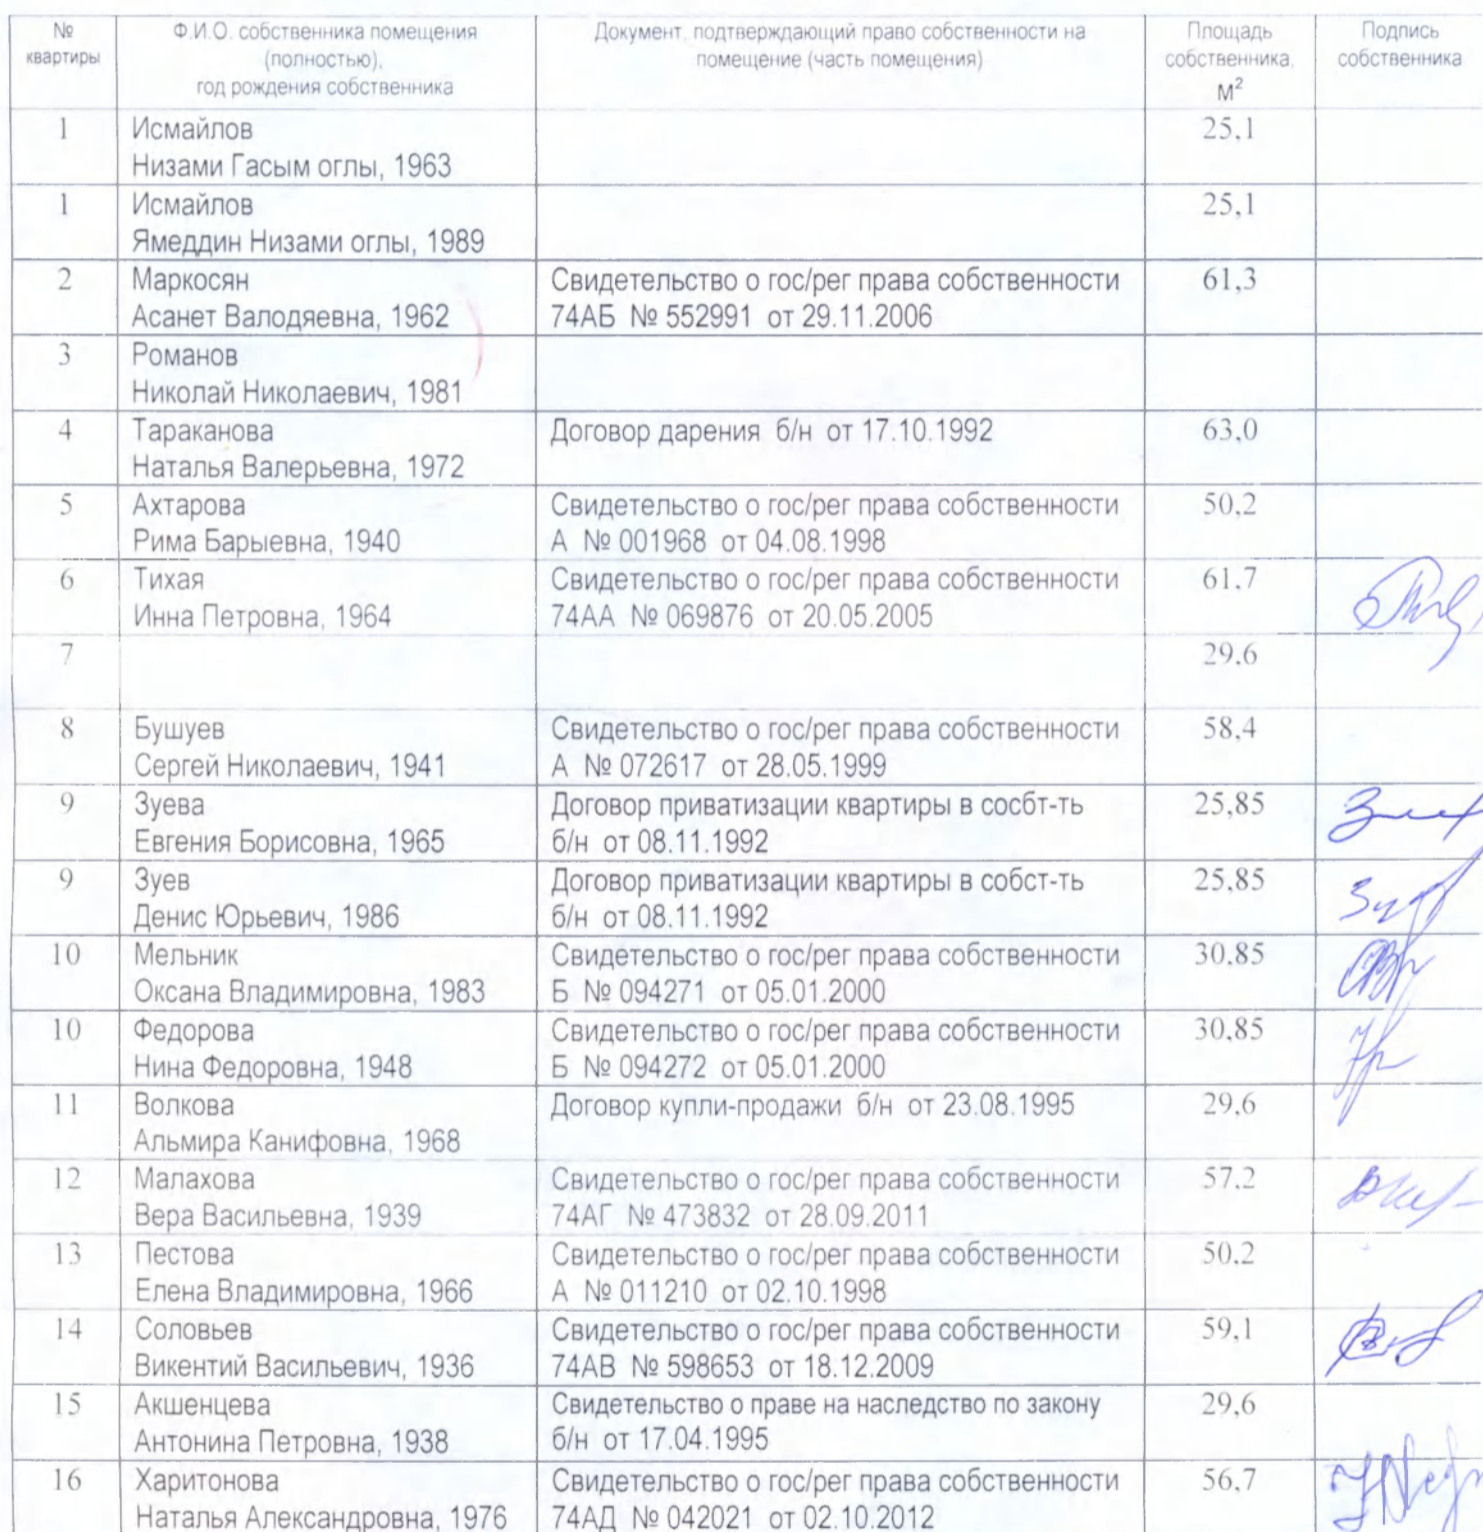 №
квартиры
Ф.И.О. собственника помещения
(полностью),
год рождения собственника
Документ, подтверждающий право собственности на
помещение (часть помещения)
Площадь
собственника,
м²
Подпись
собственника
1
Исмайлов
Низами Гасым оглы, 1963
25,1
1
Исмайлов
Ямеддин Низами оглы, 1989
25,1
2
Маркосян
Асанет Валодяевна, 1962
Свидетельство о гос/рег права собственности
74АБ № 552991 от 29.11.2006
61,3
3
Романов
Николай Николаевич, 1981
4
Тараканова
Наталья Валерьевна, 1972
Договор дарения б/н от 17.10.1992
63,0
5
Ахтарова
Рима Барыевна, 1940
Свидетельство о гос/рег права собственности
А № 001968 от 04.08.1998
50,2
6
Тихая
Инна Петровна, 1964
Свидетельство о гос/рег права собственности
74АА № 069876 от 20.05.2005
61,7
7
29,6
8
Бушуев
Сергей Николаевич, 1941
Свидетельство о гос/рег права собственности
А № 072617 от 28.05.1999
58,4
9
Зуева
Евгения Борисовна, 1965
Договор приватизации квартиры в сосбт-ть
б/н от 08.11.1992
25,85
9
Зуев
Денис Юрьевич, 1986
Договор приватизации квартиры в собст-ть
б/н от 08.11.1992
25,85
10
Мельник
Оксана Владимировна, 1983
Свидетельство о гос/рег права собственности
Б № 094271 от 05.01.2000
30,85
10
Федорова
Нина Федоровна, 1948
Свидетельство о гос/рег права собственности
Б № 094272 от 05.01.2000
30,85
11
Волкова
Альмира Канифовна, 1968
Договор купли-продажи б/н от 23.08.1995
29,6
12
Малахова
Вера Васильевна, 1939
Свидетельство о гос/рег права собственности
74АГ № 473832 от 28.09.2011
57,2
13
Пестова
Елена Владимировна, 1966
Свидетельство о гос/рег права собственности
А № 011210 от 02.10.1998
50,2
14
Соловьев
Викентий Васильевич, 1936
Свидетельство о гос/рег права собственности
74АВ № 598653 от 18.12.2009
59,1
15
Акшенцева
Антонина Петровна, 1938
Свидетельство о праве на наследство по закону
б/н от 17.04.1995
29,6
16
Харитонова
Наталья Александровна, 1976
Свидетельство о гос/рег права собственности
74АД № 042021 от 02.10.2012
56,7